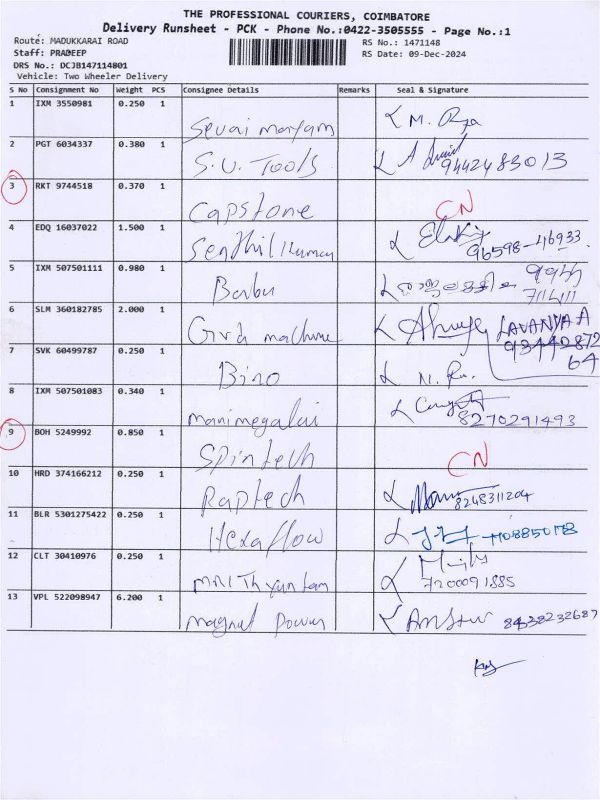 THE PROFESSIONAL COURIERS, COIMBATORE
Delivery Runsheet - PCK - Phone No.:0422-3505555 - Page No.:1
Route: MADUKKARAI ROAD RS No.: 1471148
Staff: PRADEEP RS Date: 09-Dec-2024
DRS No.: DCJB147114801
Vehicle: Two Wheeler Delivery
S No Consignment No Weight PCS Consignee Details Remarks Seal & Signature
1 IXM 3550981 0.250 1
Sevai maryam M.
2 PGT 6034337 0.380 1
S.U. Tools 9442483013
3 RKT 9744518 0.370 1
Capstone CN
4 EDQ 16037022 1.500 1
Senthil Kumar 96598-46933
5 IXM 507501111 0.980 1
Babu
6 SLM 360182785 2.000 1
machine LAVANYA A
93440872
64
7 SVK 60499787 0.250 1
Biro
8 IXM 507501083 0.340 1
manimegalai 8270291493
9 BOH 5249992 0.850 1
Spintech CN
10 HRD 374166212 0.250 1
Raptech 8248311204
11 BLR 5301275422 0.250 1
Hexaflow
12 CLT 30410976 0.250 1
7200091885
13 VPL 522098947 6.200 1
Magnal Power 8438232687